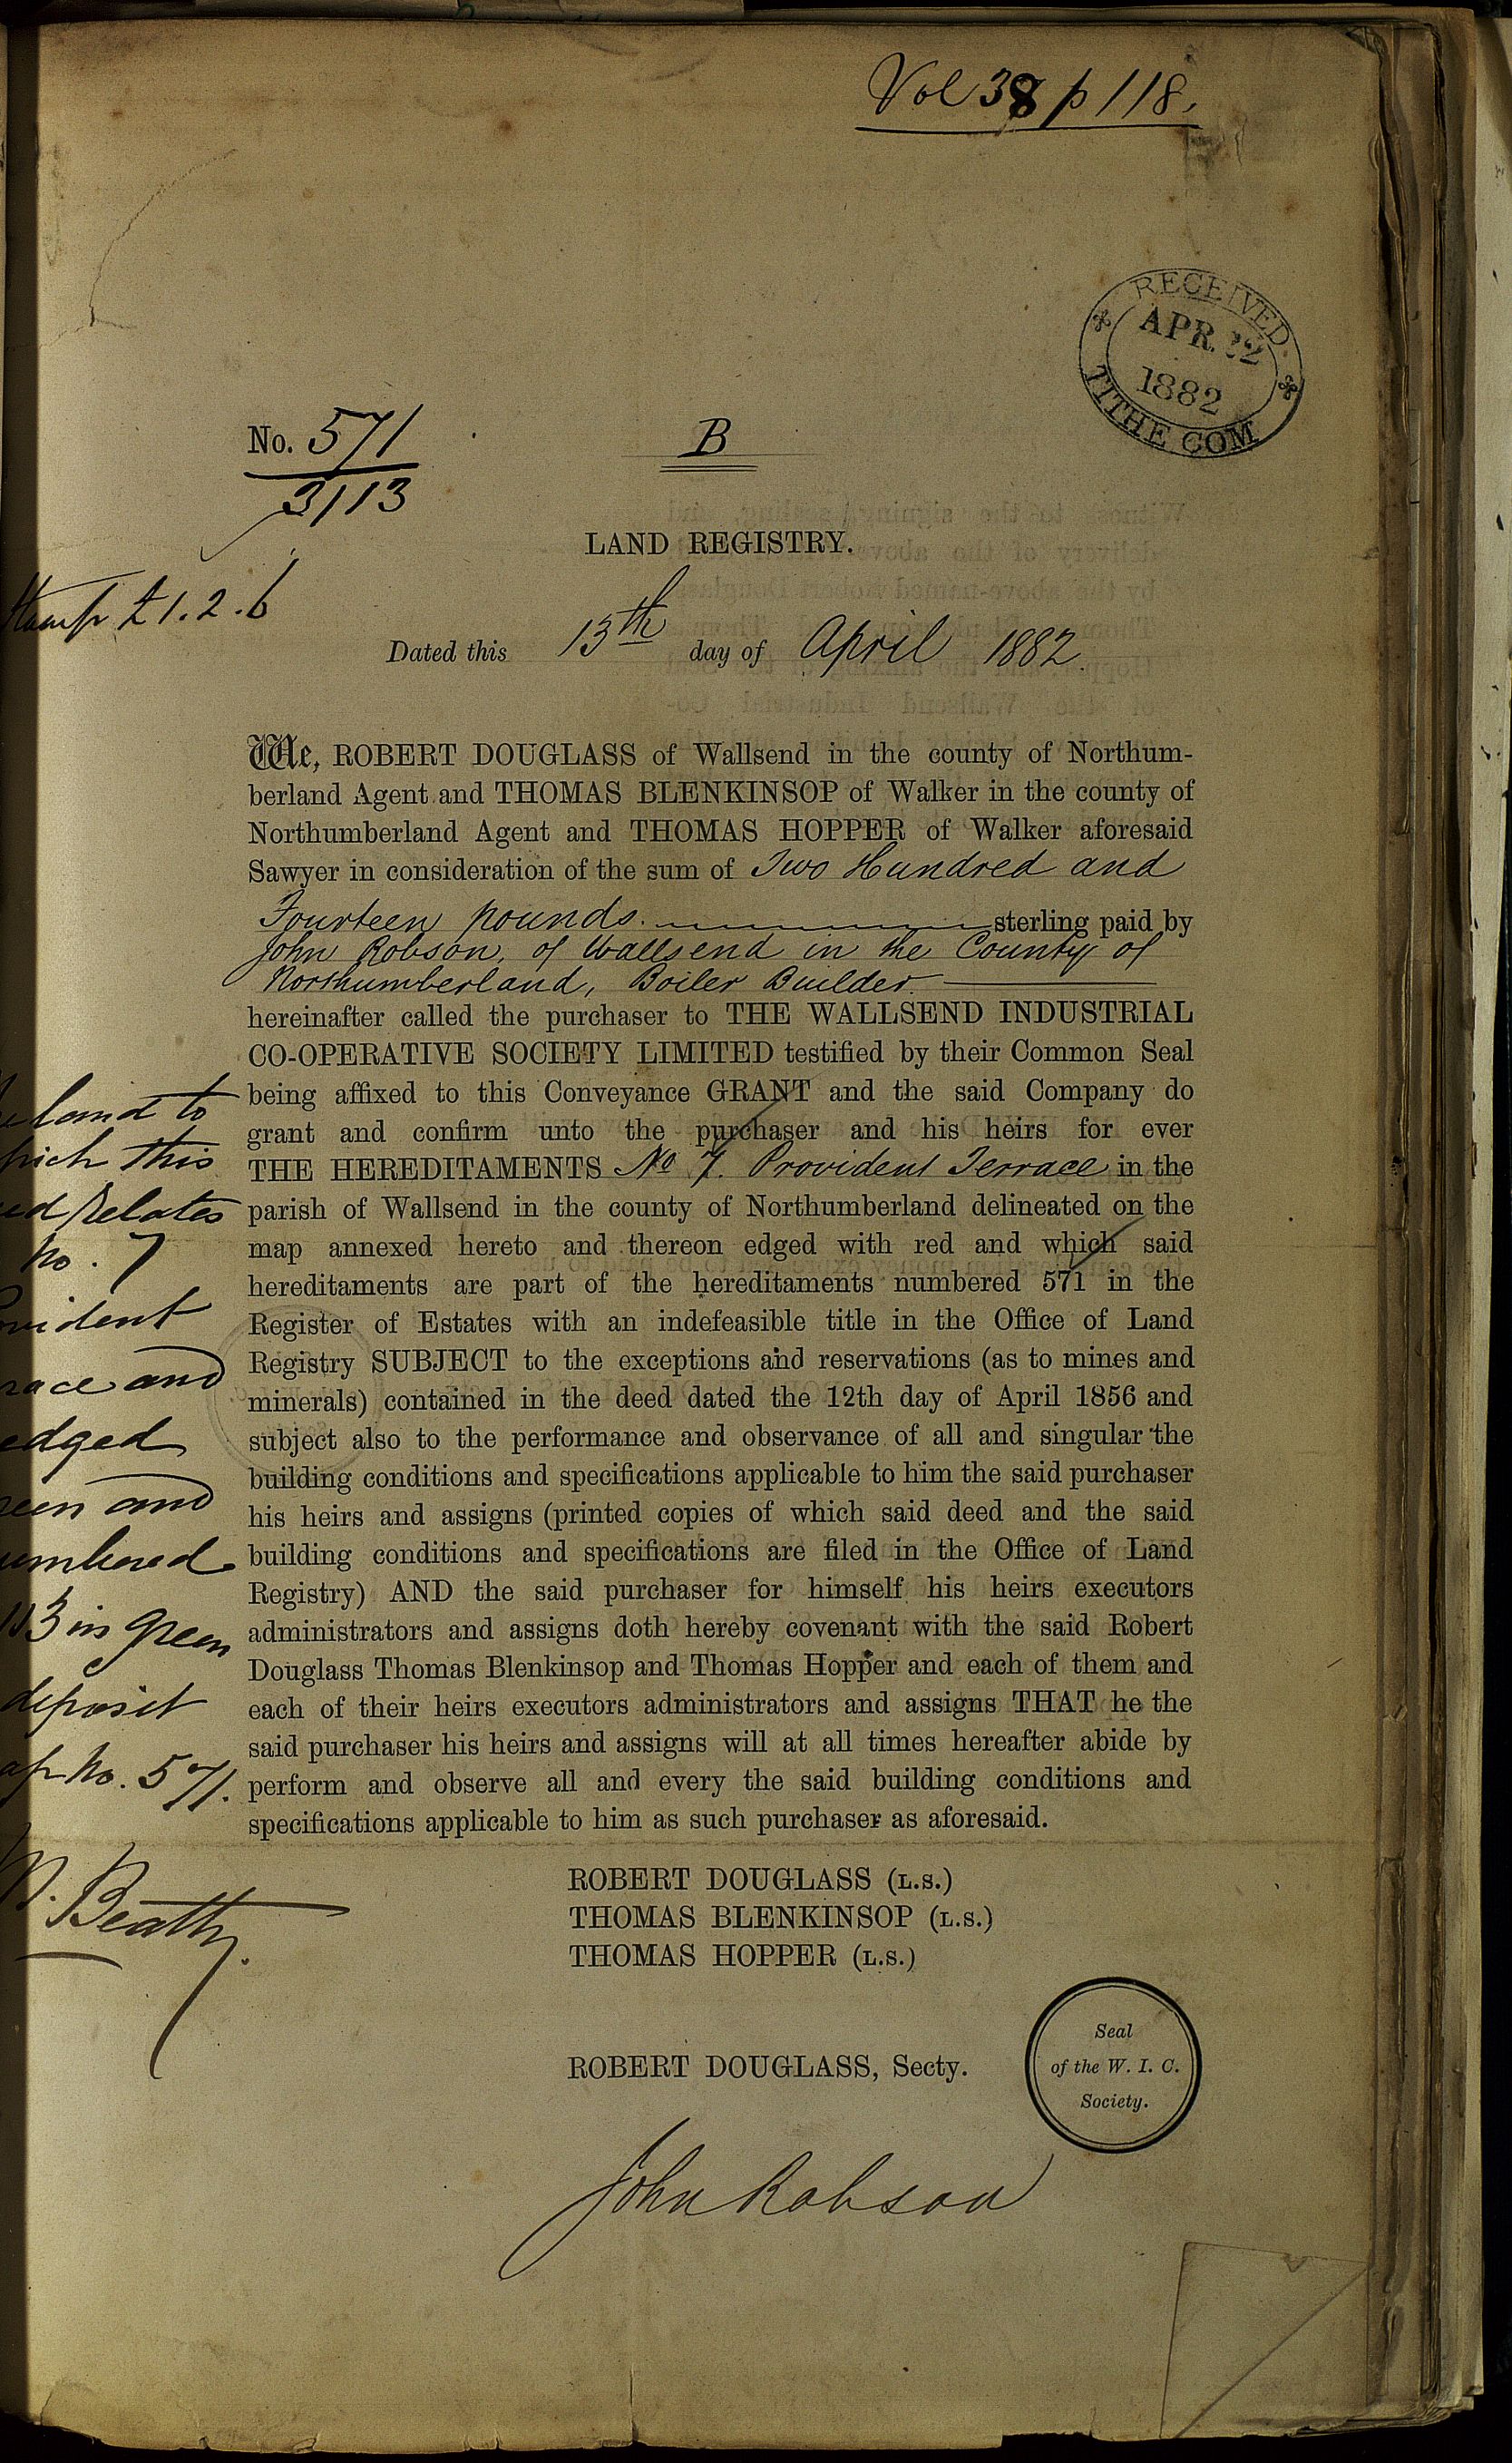 Vol 38 p 118.
RECEIVED
APR. 22
1882
TITHE COM
No. 571
3113
B
LAND REGISTRY.
Stamp £1.2.6
Dated this 13th day of April 1882.
We, ROBERT DOUGLASS of Wallsend in the county of Northum-
berland Agent and THOMAS BLENKINSOP of Walker in the county of
Northumberland Agent and THOMAS HOPPER of Walker aforesaid
Sawyer in consideration of the sum of Two Hundred and
Fourteen pounds. sterling paid by
John Robson, of Wallsend in the County of
Northumberland, Boiler Builder.
hereinafter called the purchaser to THE WALLSEND INDUSTRIAL
CO-OPERATIVE SOCIETY LIMITED testified by their Common Seal
being affixed to this Conveyance GRANT and the said Company do
grant and confirm unto the purchaser and his heirs for ever
THE HEREDITAMENTS No 7. Provident Terrace in the
parish of Wallsend in the county of Northumberland delineated on the
map annexed hereto and thereon edged with red and which said
hereditaments are part of the hereditaments numbered 571 in the
Register of Estates with an indefeasible title in the Office of Land
Registry SUBJECT to the exceptions and reservations (as to mines and
minerals) contained in the deed dated the 12th day of April 1856 and
subject also to the performance and observance of all and singular the
building conditions and specifications applicable to him the said purchaser
his heirs and assigns (printed copies of which said deed and the said
building conditions and specifications are filed in the Office of Land
Registry) AND the said purchaser for himself his heirs executors
administrators and assigns doth hereby covenant with the said Robert
Douglass Thomas Blenkinsop and Thomas Hopper and each of them and
each of their heirs executors administrators and assigns THAT he the
said purchaser his heirs and assigns will at all times hereafter abide by
perform and observe all and every the said building conditions and
specifications applicable to him as such purchaser as aforesaid.
land to
this
relates
No. 7
and
edged
and
in green
deposit
No. 571.
Beatty.
ROBERT DOUGLASS (L.S.)
THOMAS BLENKINSOP (L.S.)
THOMAS HOPPER (L.S.)
ROBERT DOUGLASS, Secty.
Seal
of the W. I. C.
Society.
John Robson